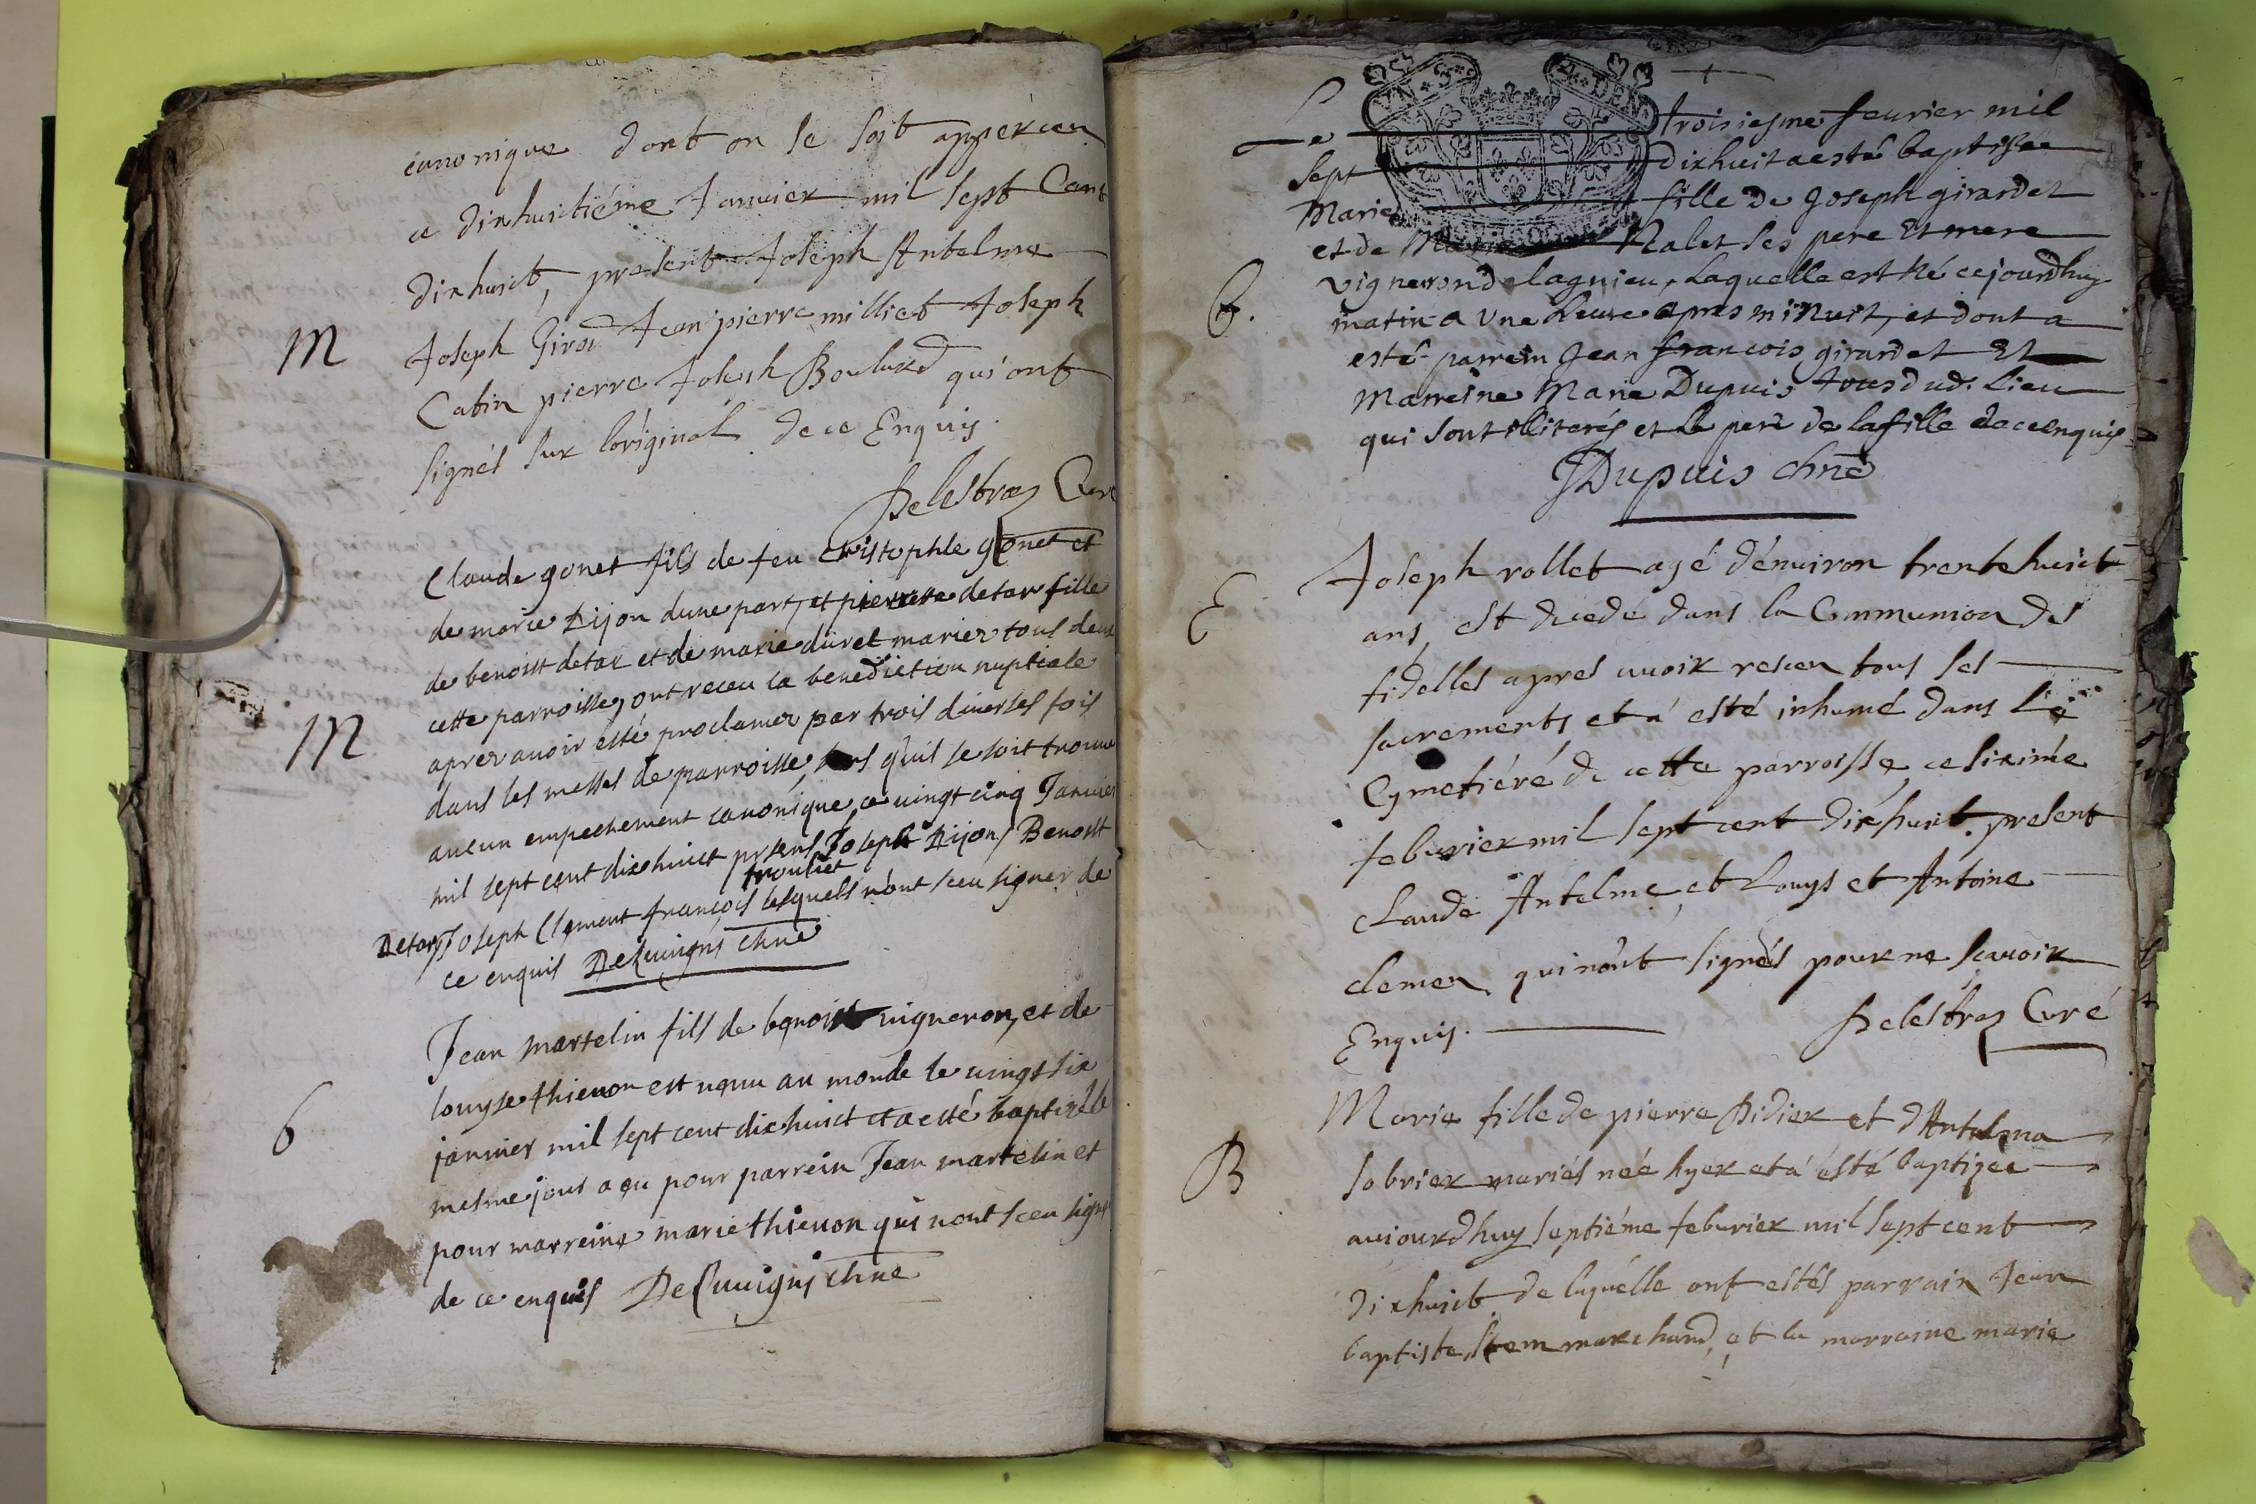 canonique dont on se soit apperceu
ce dixhuictiéme Janvier mil sept Cent
dixhuict, present Joseph Antelme
M
Joseph Girod Jean pierre milliet Joseph
Cabin pierre Joseph Boulard qui ont
signés sur l'original de ce Enquis.
Delestraz Curé
Claude gonet fils de feu Cristophle gonet et
de marie Dijon dune part, et pierrette detar fille
de benoist detar et de marie duret mariez tous deux
cette parroisse, ont receu la benediction nuptiale
M
aprez avoir esté proclamez par trois diverses fois
dans les messes de parroisse, sans quil se soit trouvé
aucun empechement canonique, ce vingt cinq Janvier
mil sept cent dixhuict presens Joseph Dijon, Benoist
trouliet
Detar, Joseph Clement francois lesquels n'ont sceu signer de
ce enquis Delauigni chne
Jean martelin fils de benoist vigneron, et de
louyse thievon est venu au monde le vingt six
6
janvier mil sept cent dixhuict et a esté baptizé le
mesme jour a eu pour parrein Jean martelin et
pour marreine marie thievon qui n'ont sceu signer
de ce enquis Delauigni chne
UN S DEN
Le troisiesme feurier mil
sept dixhuit a esté baptisée
Marie fille de Joseph girardet
et de Nalet ses pere Et mere
vigneron de lagnieu, Laquelle est Né cejourdhuy
b.
matin a Une heure apres minuit, et dont a
esté parrein Jean francois girardet Et
Marreine Marie Dupuis tous dud. Lieu
qui sont illiterés et le pere de la fille de ce enquis
JDupuis chne
Joseph rollet agé d'enuiron trente huict
E
ans, est decedé dans la Communion des
fidelles apres auoir receu tous ses
sacrements et a esté inhumé dans Le
Cymetiéré de cette parroisse ce sixiéme
feburier mil sept cent dixhuict, present
Claude Antelme et Louys et Antoine
clemen qui n'ont signés pour ne scauoir
Enquis. Delestraz Curé
Marie fille de pierre Didier et d'Antelma
B
sobrier mariés née hyer et a esté baptizée
aujourdhuy septiéme feburier mil sept cent
dixhuict de laquelle ont estés parrain Jean
baptiste marchand, et la marraine marie